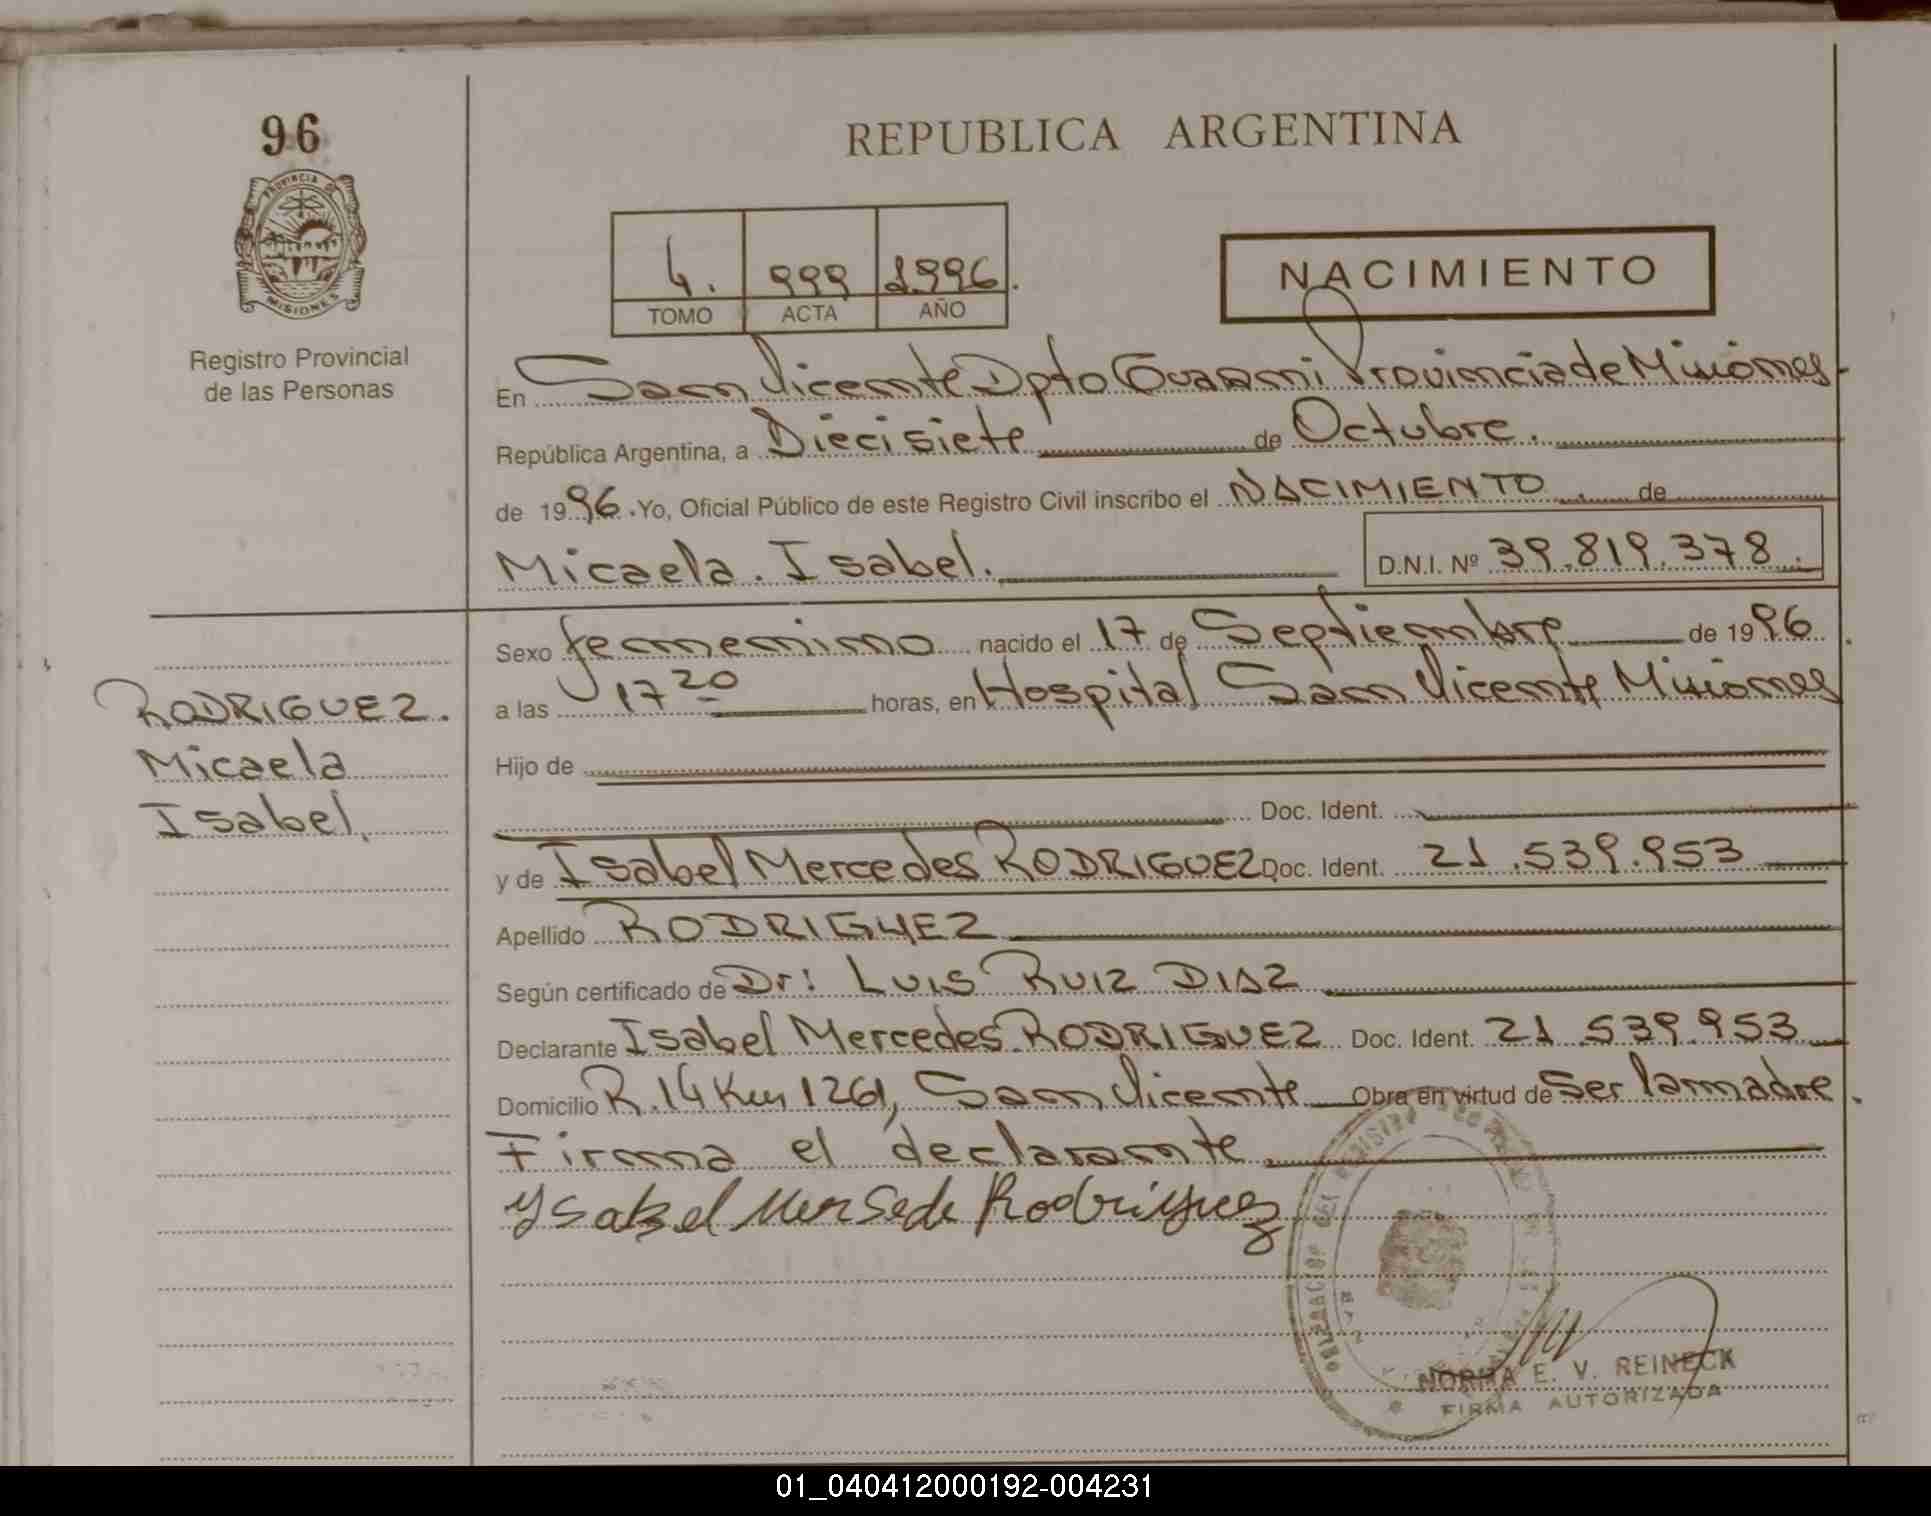 96
PROVINCIA DE
MISIONES
Registro Provincial
de las Personas
REPUBLICA ARGENTINA
4. 999 1.996.
TOMO ACTA AÑO
NACIMIENTO
En San Vicente Dpto Guarani Provincia de Misiones
República Argentina, a Diecisiete de Octubre.
de 1996. Yo, Oficial Público de este Registro Civil inscribo el NACIMIENTO. de
Micaela. Isabel. D.N.I. Nº 39.819.378.
Sexo femenino nacido el 17 de Septiembre de 1996.
a las 17 20 horas, en Hospital San Vicente Misiones
RODRIGUEZ.
Micaela
Isabel.
Hijo de
Doc. Ident.
y de Isabel Mercedes RODRIGUEZ Doc. Ident. 21.539.953
Apellido RODRIGUEZ
Según certificado de Dr: LUIS RUIZ DIAZ
Declarante Isabel Mercedes RODRIGUEZ Doc. Ident. 21.539.953
Domicilio R.14 Km 1261, San Vicente Obra en virtud de Ser la madre.
Firma el declarante
Ysabel Mersede Rodriguez
NORMA E. V. REINECK
FIRMA AUTORIZADA
01_040412000192-004231